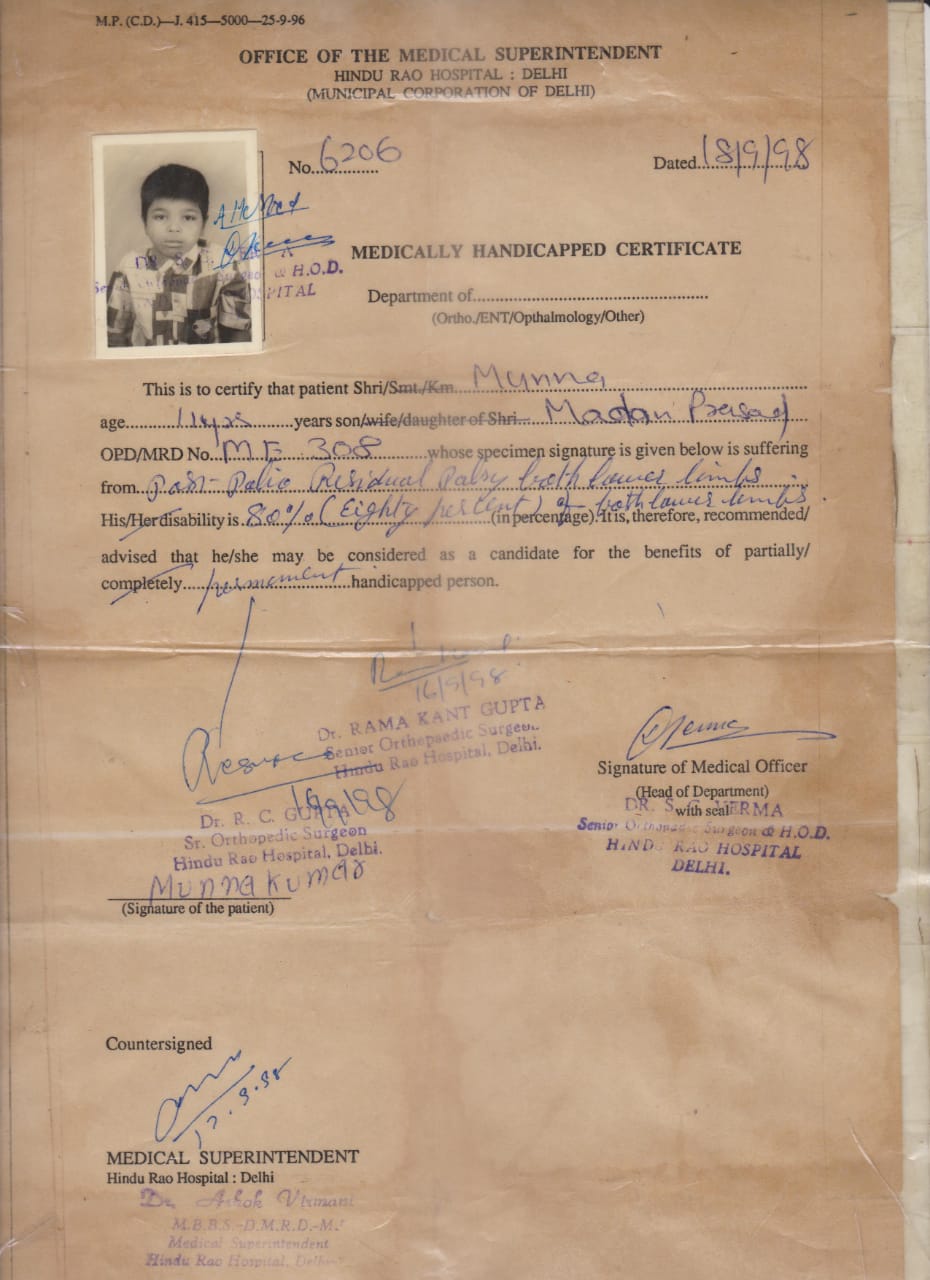 M.P. (C.D.)—J. 415—5000—25-9-96
OFFICE OF THE MEDICAL SUPERINTENDENT
HINDU RAO HOSPITAL : DELHI
(MUNICIPAL CORPORATION OF DELHI)
No. 6206
Dated 18/9/98
MEDICALLY HANDICAPPED CERTIFICATE
DR. S.
& H.O.D.
Department of
(Ortho./ENT/Opthalmology/Other)
This is to certify that patient Shri/Smt./Km. Munna
age 11 yrs years son/wife/daughter of Shri Madan Prasad
OPD/MRD No. ME 308 whose specimen signature is given below is suffering
from Post-Polio Residual Palsy both lower limbs
His/Her disability is 80% (Eighty percent) of both lower limbs (in percentage). It is, therefore, recommended/
advised that he/she may be considered as a candidate for the benefits of partially/
completely permanent handicapped person.
16/9/98
Dr. RAMA KANT GUPTA
Senior Orthopaedic Surgeon
Hindu Rao Hospital, Delhi.
Signature of Medical Officer
(Head of Department)
with seal
DR. S. C. VERMA
Senior Orthopaedic Surgeon & H.O.D.
HINDU RAO HOSPITAL
DELHI.
Dr. R. C. GUPTA
Sr. Orthopedic Surgeon
Hindu Rao Hospital, Delhi.
Munna Kumar
(Signature of the patient)
Countersigned
17.9.98
MEDICAL SUPERINTENDENT
Hindu Rao Hospital : Delhi
Dr. Ashok Virmani
M.B.B.S.-D.M.R.D.-M.
Medical Superintendent
Hindu Rao Hospital, Delhi